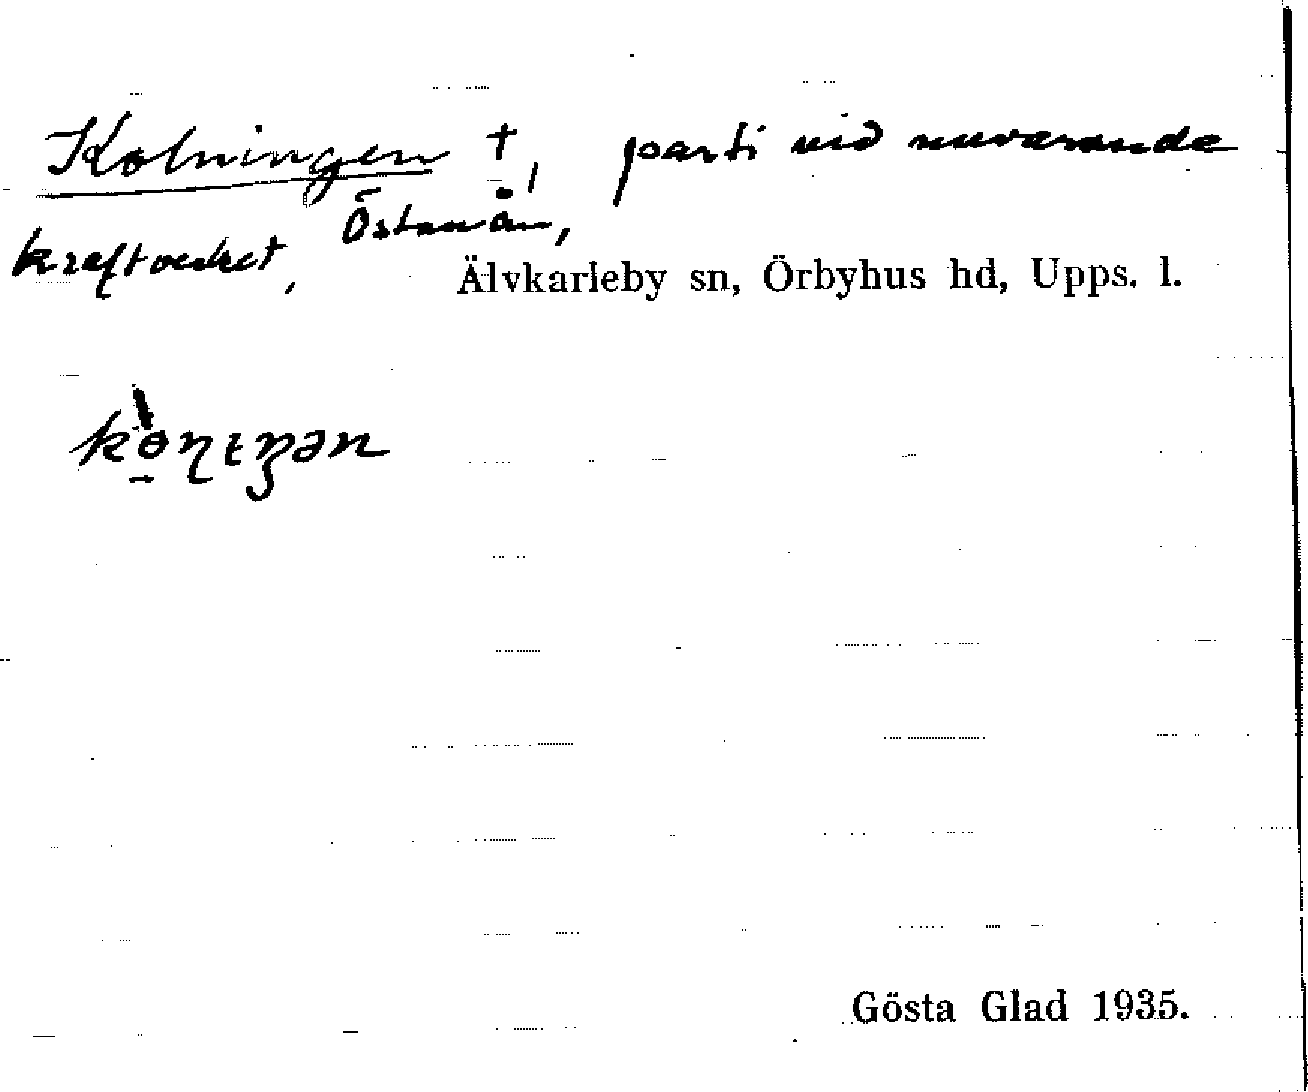 Kolningen †, parti vid nuvarande
kraftverket, Östanån,
Älvkarleby sn, Örbyhus hd, Upps. l.
Gösta Glad 1935.